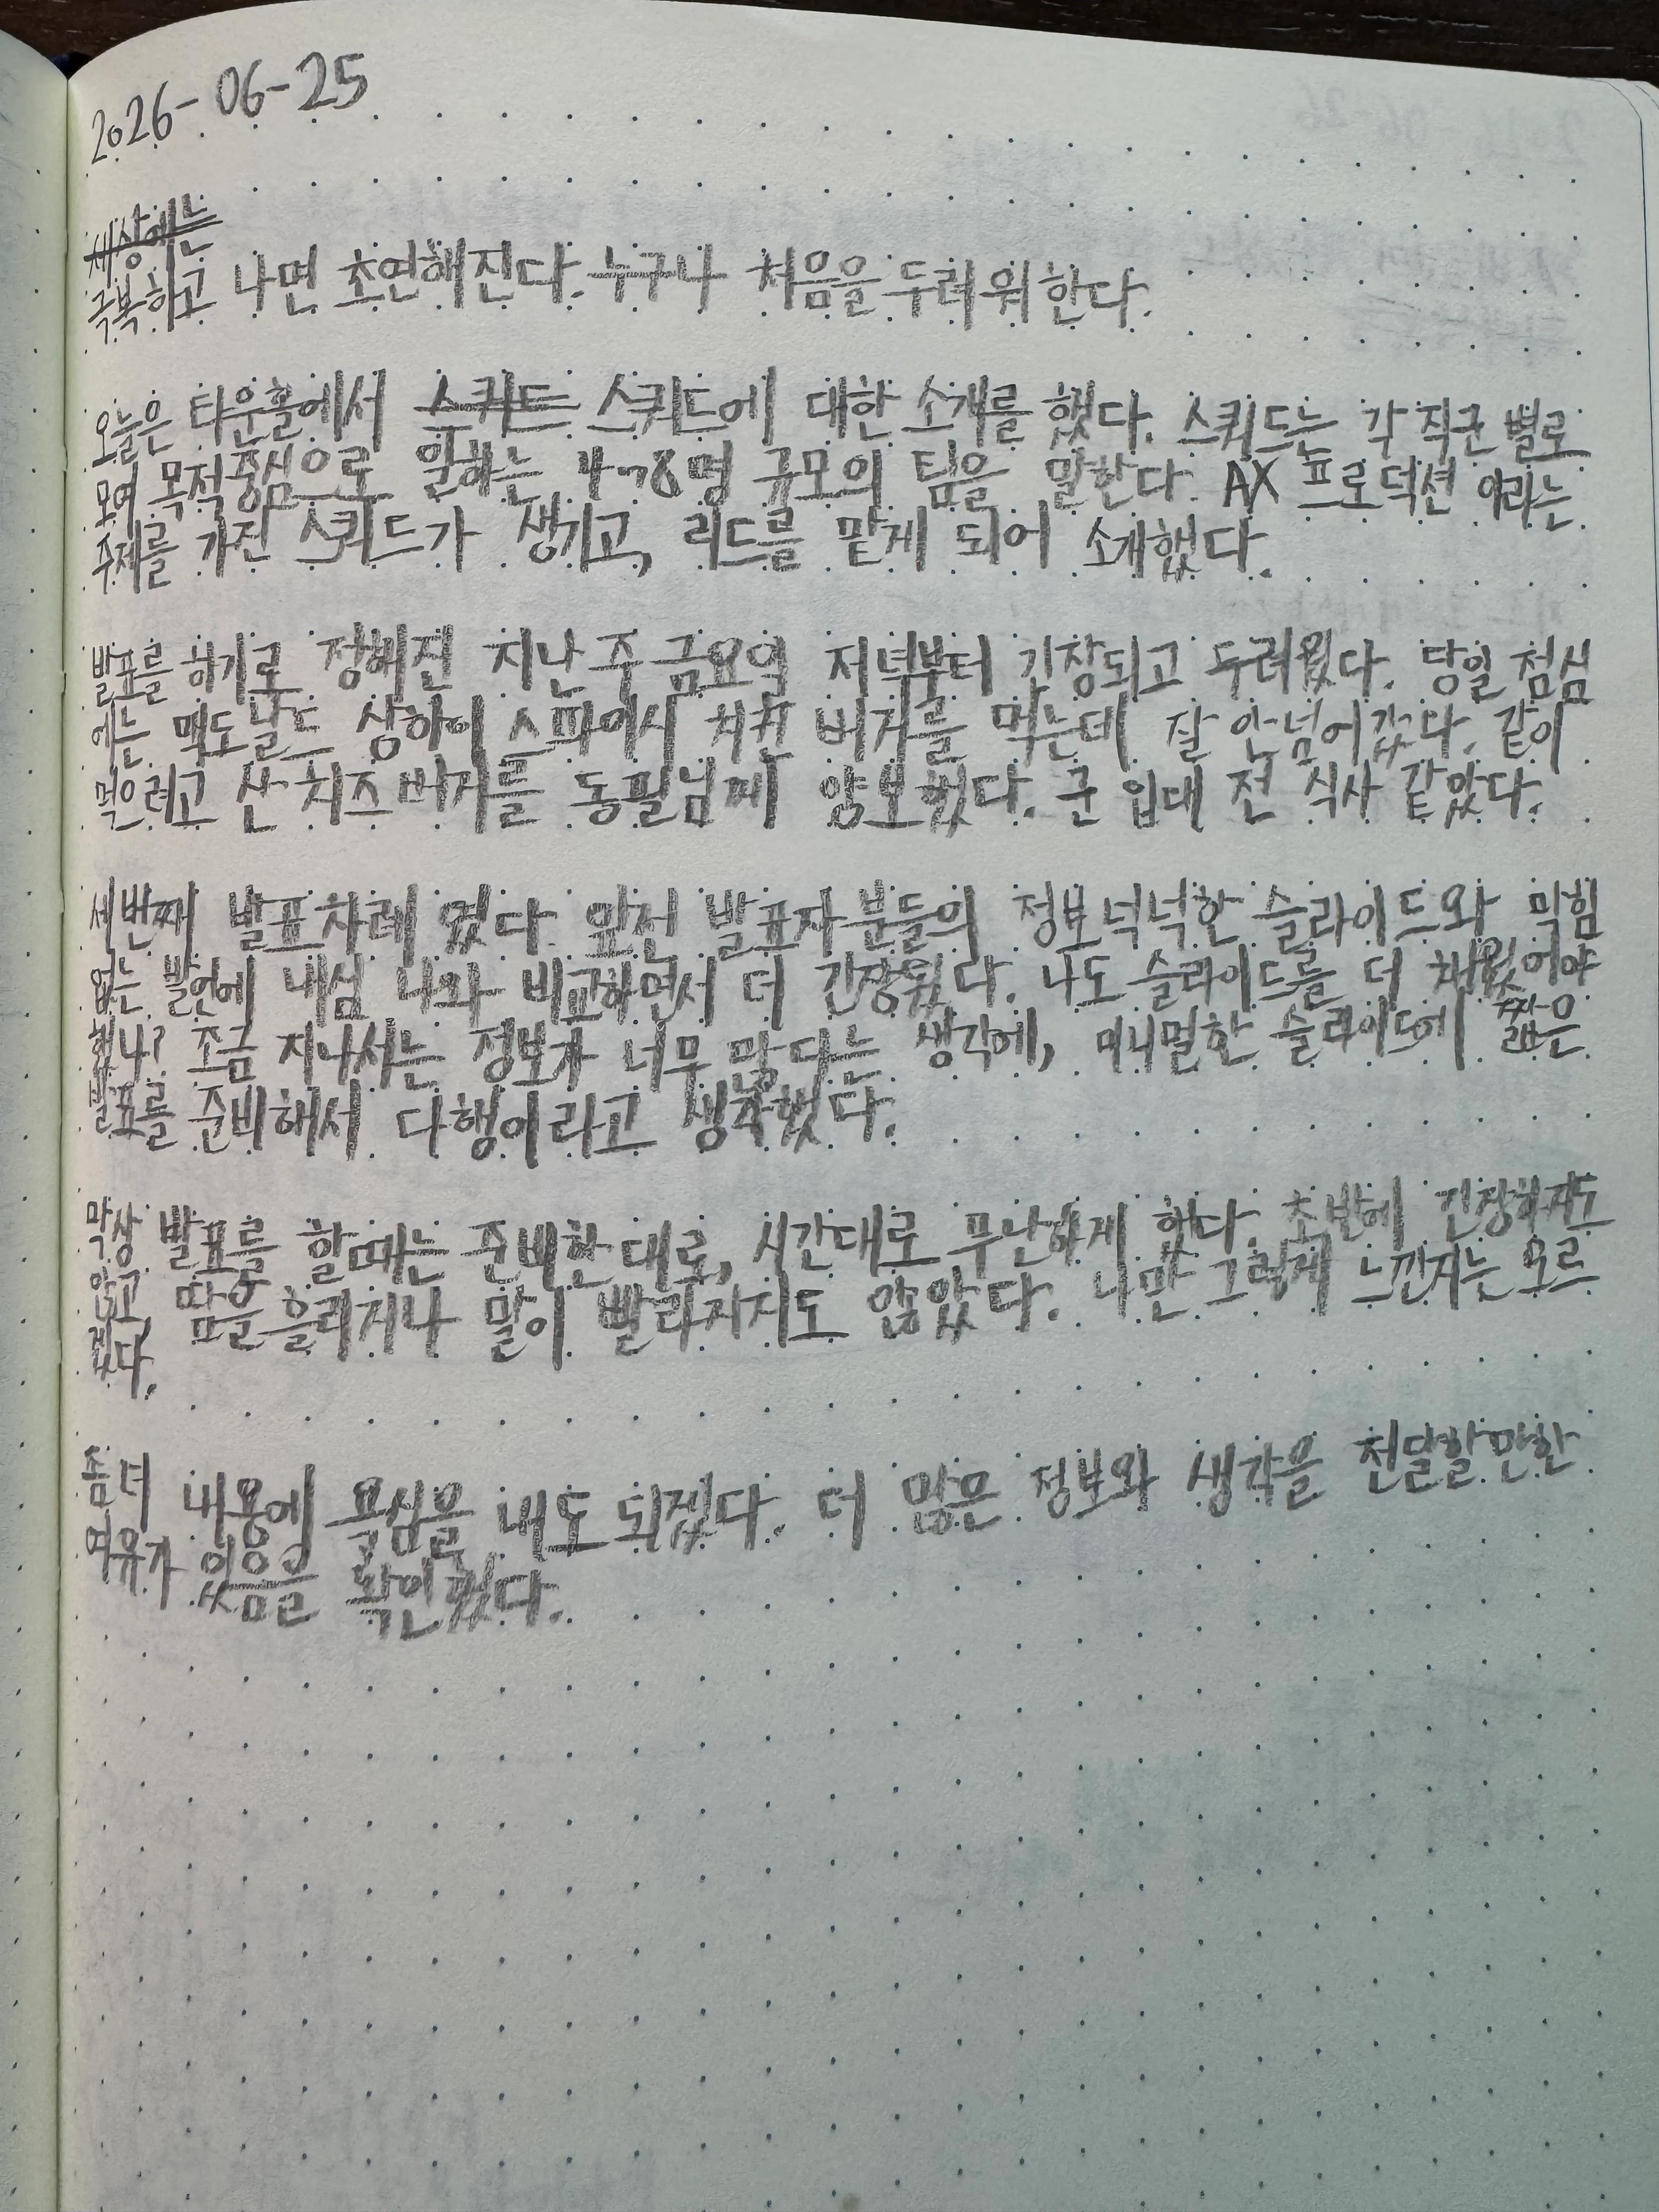 2026-06-25
세상에는
극복하고 나면 초연해진다. 누구나 처음을 두려워한다.
오늘은 타운홀에서 스쿼트 스쿼드에 대한 소개를 했다. 스쿼드는 각 직군 별로
모여 목적중심으로 일하는 4~8명 규모의 팀을 말한다. AX 프로덕션 이라는
주제를 가진 스쿼드가 생기고, 리드를 맡게 되어 소개했다.
발표를 하기로 정해진 지난 주 금요일 저녁부터 긴장되고 두려웠다. 당일 점심
에는 맥도날드 상하이 스파이시 치킨 버거를 먹는데 잘 안 넘어갔다. 같이
먹으려고 산 치즈버거를 동필님께 양보했다. 군 입대 전 식사 같았다.
세번째 발표차례 였다. 앞전 발표자분들의 정보 넉넉한 슬라이드와 막힘
없는 발언에 내심 나와 비교하면서 더 긴장됐다. 나도 슬라이드를 더 채웠어야
했나? 조금 지나서는 정보가 너무 많다는 생각에, 미니멀한 슬라이드에 짧은
발표를 준비해서 다행이라고 생각했다.
막상 발표를 할때는 준비한대로, 시간대로 무난하게 했다. 초반에 긴장하지도
않고, 땀을 흘리거나 말이 빨라지지도 않았다. 나만 그렇게 느낀지는 모르
겠다.
좀 더 내용에 욕심을 내도 되겠다. 더 많은 정보와 생각을 전달할만한
여유가 있음을 확인했다.